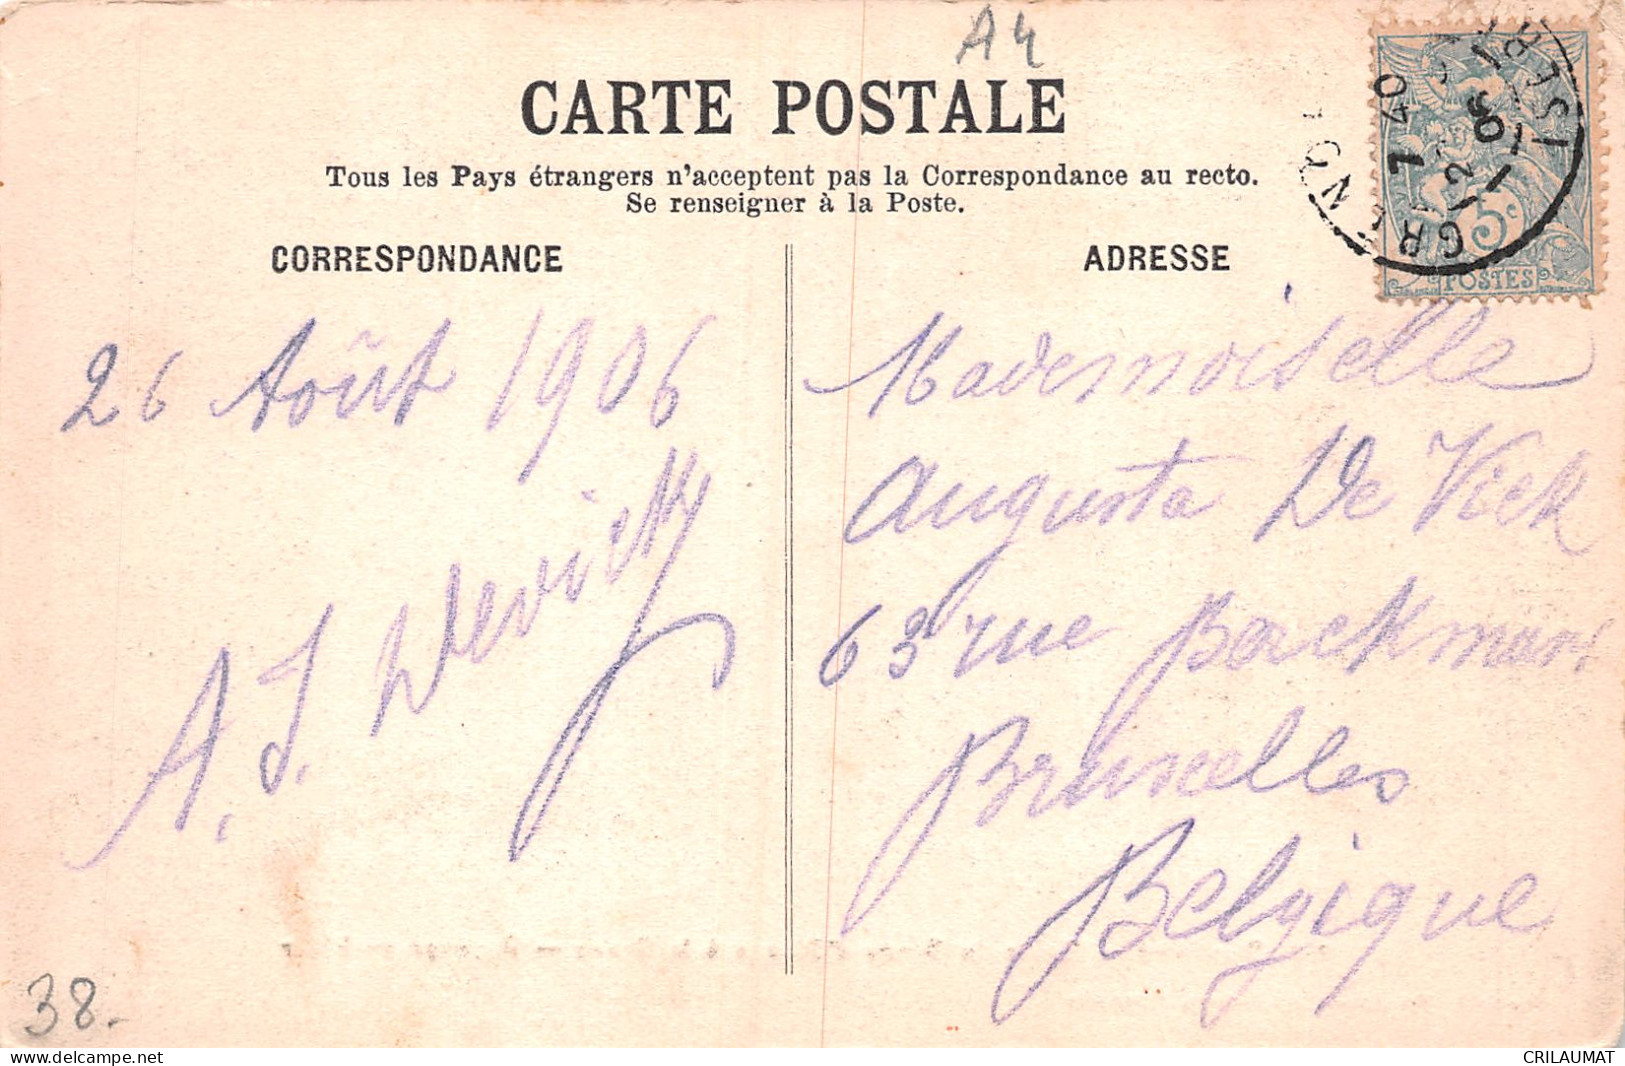 A4
CARTE POSTALE
Tous les Pays étrangers n'acceptent pas la Correspondance au recto.
Se renseigner à la Poste.
CORRESPONDANCE
26 Août 1906
A. J. Devick
ADRESSE
5c
POSTES
GRENO
7 40
ISÈR
Mademoiselle
Augusta De Vick
63 rue Berckmans
Bruxelles
Belgique
38.
www.delcampe.net
CRILAUMAT